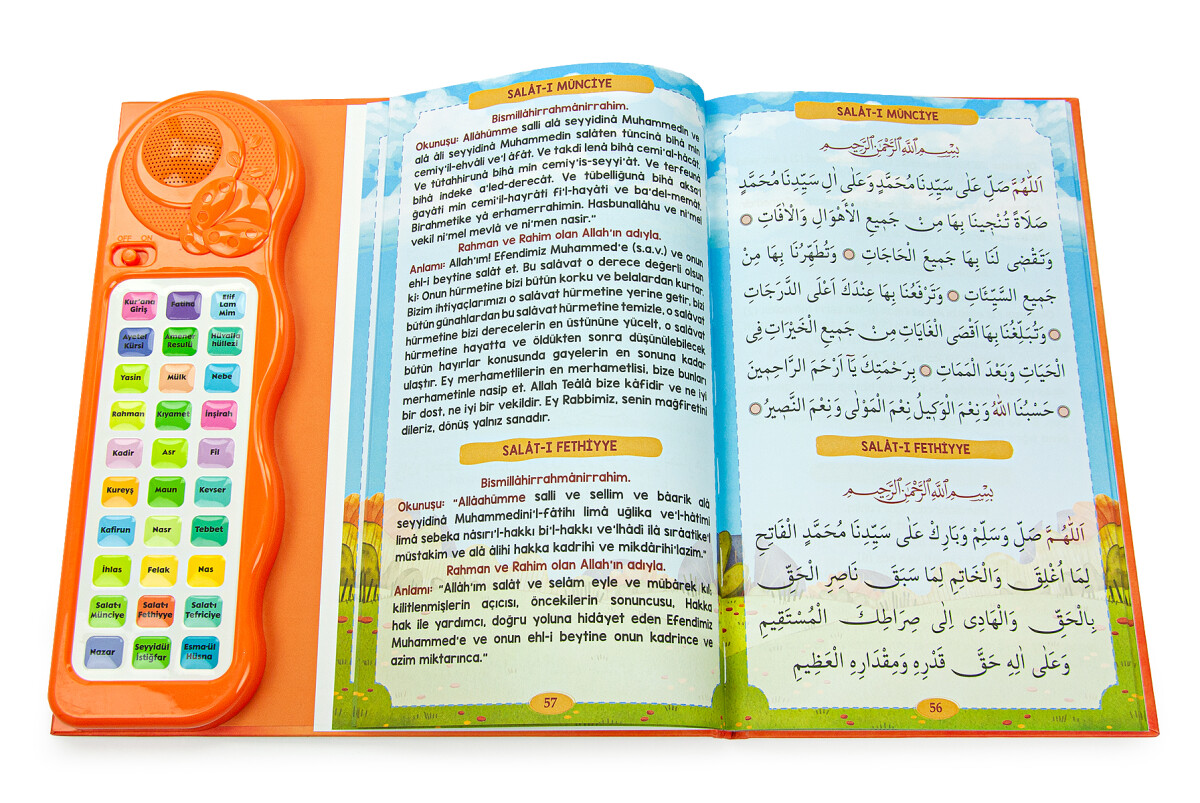 OFF ON
Kur'ana Giriş
Fatiha
Elif Lam Mim
Ayetel Kürsi
Amene Resulü
Hüvalla hüllezi
Yasin
Mülk
Nebe
Rahman
Kıyamet
İnşirah
Kadir
Asr
Fil
Kureyş
Maun
Kevser
Kafirun
Nasr
Tebbet
İhlas
Felak
Nas
Salat-ı Münciye
Salat-ı Fethiyye
Salat-ı Tefriciye
Nazar
Seyyidül İstiğfar
Esma-ül Hüsna
SALÂT-I MÜNCİYE
Bismillâhirrahmânirrahim.
Okunuşu: Allâhümme salli alâ seyyidinâ Muhammedin ve
alâ âli seyyidinâ Muhammedin salâten tüncinâ bihâ min
cemiy'il-ehvâli ve'l âfât. Ve takdî lenâ bihâ cemi'al-hâcât,
Ve tütahhirunâ bihâ min cemiy'is-seyyi'ât. Ve terfeunâ
bihâ indeke a'led-derecât. Ve tübelliğunâ bihâ aksa'l
ğayâti min cemi'il-hayrâti fi'l-hayâti ve ba'del-memât.
Birahmetike yâ erhamerrahimin. Hasbunallâhu ve ni'mel
vekil ni'mel mevlâ ve ni'men nasir."
Rahman ve Rahim olan Allah'ın adıyla.
Anlamı: Allah'ım! Efendimiz Muhammed'e (s.a.v.) ve onun
ehl-i beytine salât et. Bu salâvat o derece değerli olsun
ki: Onun hürmetine bizi bütün korku ve belalardan kurtar.
Bizim ihtiyaçlarımızı o salâvat hürmetine yerine getir, bizi
bütün günahlardan bu salâvat hürmetine temizle, o salâvat
hürmetine bizi derecelerin en üstününe yücelt, o salâvat
hürmetine hayatta ve öldükten sonra düşünülebilecek
bütün hayırlar konusunda gayelerin en sonuna kadar
ulaştır. Ey merhametlilerin en merhametlisi, bize bunları
merhametinle nasip et. Allah Teâlâ bize kâfidir ve ne iyi
bir dost, ne iyi bir vekildir. Ey Rabbimiz, senin mağfiretini
dileriz, dönüş yalnız sanadır.
SALÂT-I FETHİYYE
Bismillâhirrahmânirrahim.
Okunuşu: "Allâahümme salli ve sellim ve bâarik alâ
seyyidinâ Muhammedini'l-fâtihı limâ uğlika ve'l-hâtimi
limâ sebeka nâsırı'l-hakkı bi'l-hakkı ve'lhâdi ilâ sırâatike'l
müstakim ve alâ âlihi hakka kadrihi ve mikdârihi'lazim."
Rahman ve Rahim olan Allah'ın adıyla.
Anlamı: "Allâh'ım salât ve selâm eyle ve mübârek kıl;
kilitlenmişlerin açıcısı, öncekilerin sonuncusu, Hakka
hak ile yardımcı, doğru yoluna hidâyet eden Efendimiz
Muhammed'e ve onun ehl-i beytine onun kadrince ve
azim miktarınca."
57
SALÂT-I MÜNCİYE
بِسْمِ اللّٰهِ الرَّحْمٰنِ الرَّحِيمِ
اَللّٰهُمَّ صَلِّ عَلٰى سَيِّدِنَا مُحَمَّدٍ وَعَلٰى اٰلِ سَيِّدِنَا مُحَمَّدٍ
صَلَاةً تُنْجِينَا بِهَا مِنْ جَمِيعِ الْأَهْوَالِ وَالْاٰفَاتِ
وَتَقْضِى لَنَا بِهَا جَمِيعَ الْحَاجَاتِ وَتُطَهِّرُنَا بِهَا مِنْ
جَمِيعِ السَّيِّئَاتِ وَتَرْفَعُنَا بِهَا عِنْدَكَ أَعْلَى الدَّرَجَاتِ
وَتُبَلِّغُنَا بِهَا أَقْصَى الْغَايَاتِ مِنْ جَمِيعِ الْخَيْرَاتِ فِى
الْحَيَاتِ وَبَعْدَ الْمَمَاتِ بِرَحْمَتِكَ يَآ اَرْحَمَ الرَّاحِمِينَ
حَسْبُنَا اللهُ وَنِعْمَ الْوَكِيلُ نِعْمَ الْمَوْلٰى وَنِعْمَ النَّصِيرُ
SALÂT-I FETHİYYE
بِسْمِ اللّٰهِ الرَّحْمٰنِ الرَّحِيمِ
اَللّٰهُمَّ صَلِّ وَسَلِّمْ وَبَارِكْ عَلٰى سَيِّدِنَا مُحَمَّدٍ الْفَاتِحِ
لِمَا اُغْلِقَ وَالْخَاتِمِ لِمَا سَبَقَ نَاصِرِ الْحَقِّ
بِالْحَقِّ وَالْهَادِى اِلٰى صِرَاطِكَ الْمُسْتَقِيمِ
وَعَلٰى اٰلِهِ حَقَّ قَدْرِهِ وَمِقْدَارِهِ الْعَظِيمِ
56